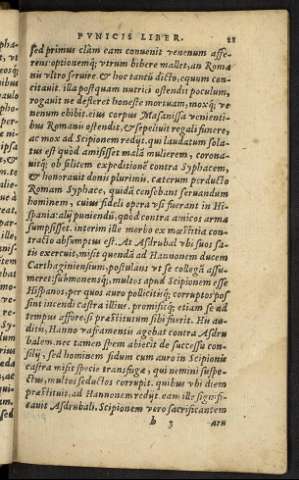 PVNICIS LIBER. 22
sed primus clàm eam conuenit venenum affe-
rens: optionemq́; vtrum bibere mallet, an Roma
nii vltro seruire. & hoc tantū dicto, equum con
citauit. illa postquam nutrici ostendit poculum,
rogauit ne defleret honestè mortuam, moxq́; ve
nenum ebibit. eius corpus Masanissa venienti-
bus Romanis ostendit, & sepeliuit regali funere,
ac mox ad Scipionem redijt. qui laudatum sola-
tus est quòd amisisset malā mulierem, corona-
uitq́; ob felitem expeditionē contra Syphacem,
& honorauit donis plurimis. cæterum perducto
Romam Syphace, quidā censebant seruandum
hominem, cuius fideli opera vsi fuerant in Hi-
spania: alij puniendū, quòd contra amicos arma
sumpsisset. interim ille morbo ex mæstitia con-
tractio absumptus est. At Asdrubal vbi suos sa-
tis exercuit, misit quendā ad Hannonem ducem
Carthaginiensium, postulans vt se collegā assu-
meret: submonensq́;, multos apud Scipionem esse
Hispanos, per quos auro pollicitisq́; corruptos pos
sint incendi castra illius. promisitq́; etiam se ad
tempus affore, si præstitutum sibi fuerit. His au-
ditis, Hanno vaframentis agebat contra Asdru
balem. nec tamen spem abiecit de successu con-
silij, sed hominem fidum cum auro in Scipionis
castra misit specie transfugæ, qui nemini suspe-
ctus, multos seductos corrupit. quibus vbi diem
præstituit, ad Hannonem redijt. eam ille signifi-
cauit Asdrubali. Scipionem vero sacrificantem
b 3